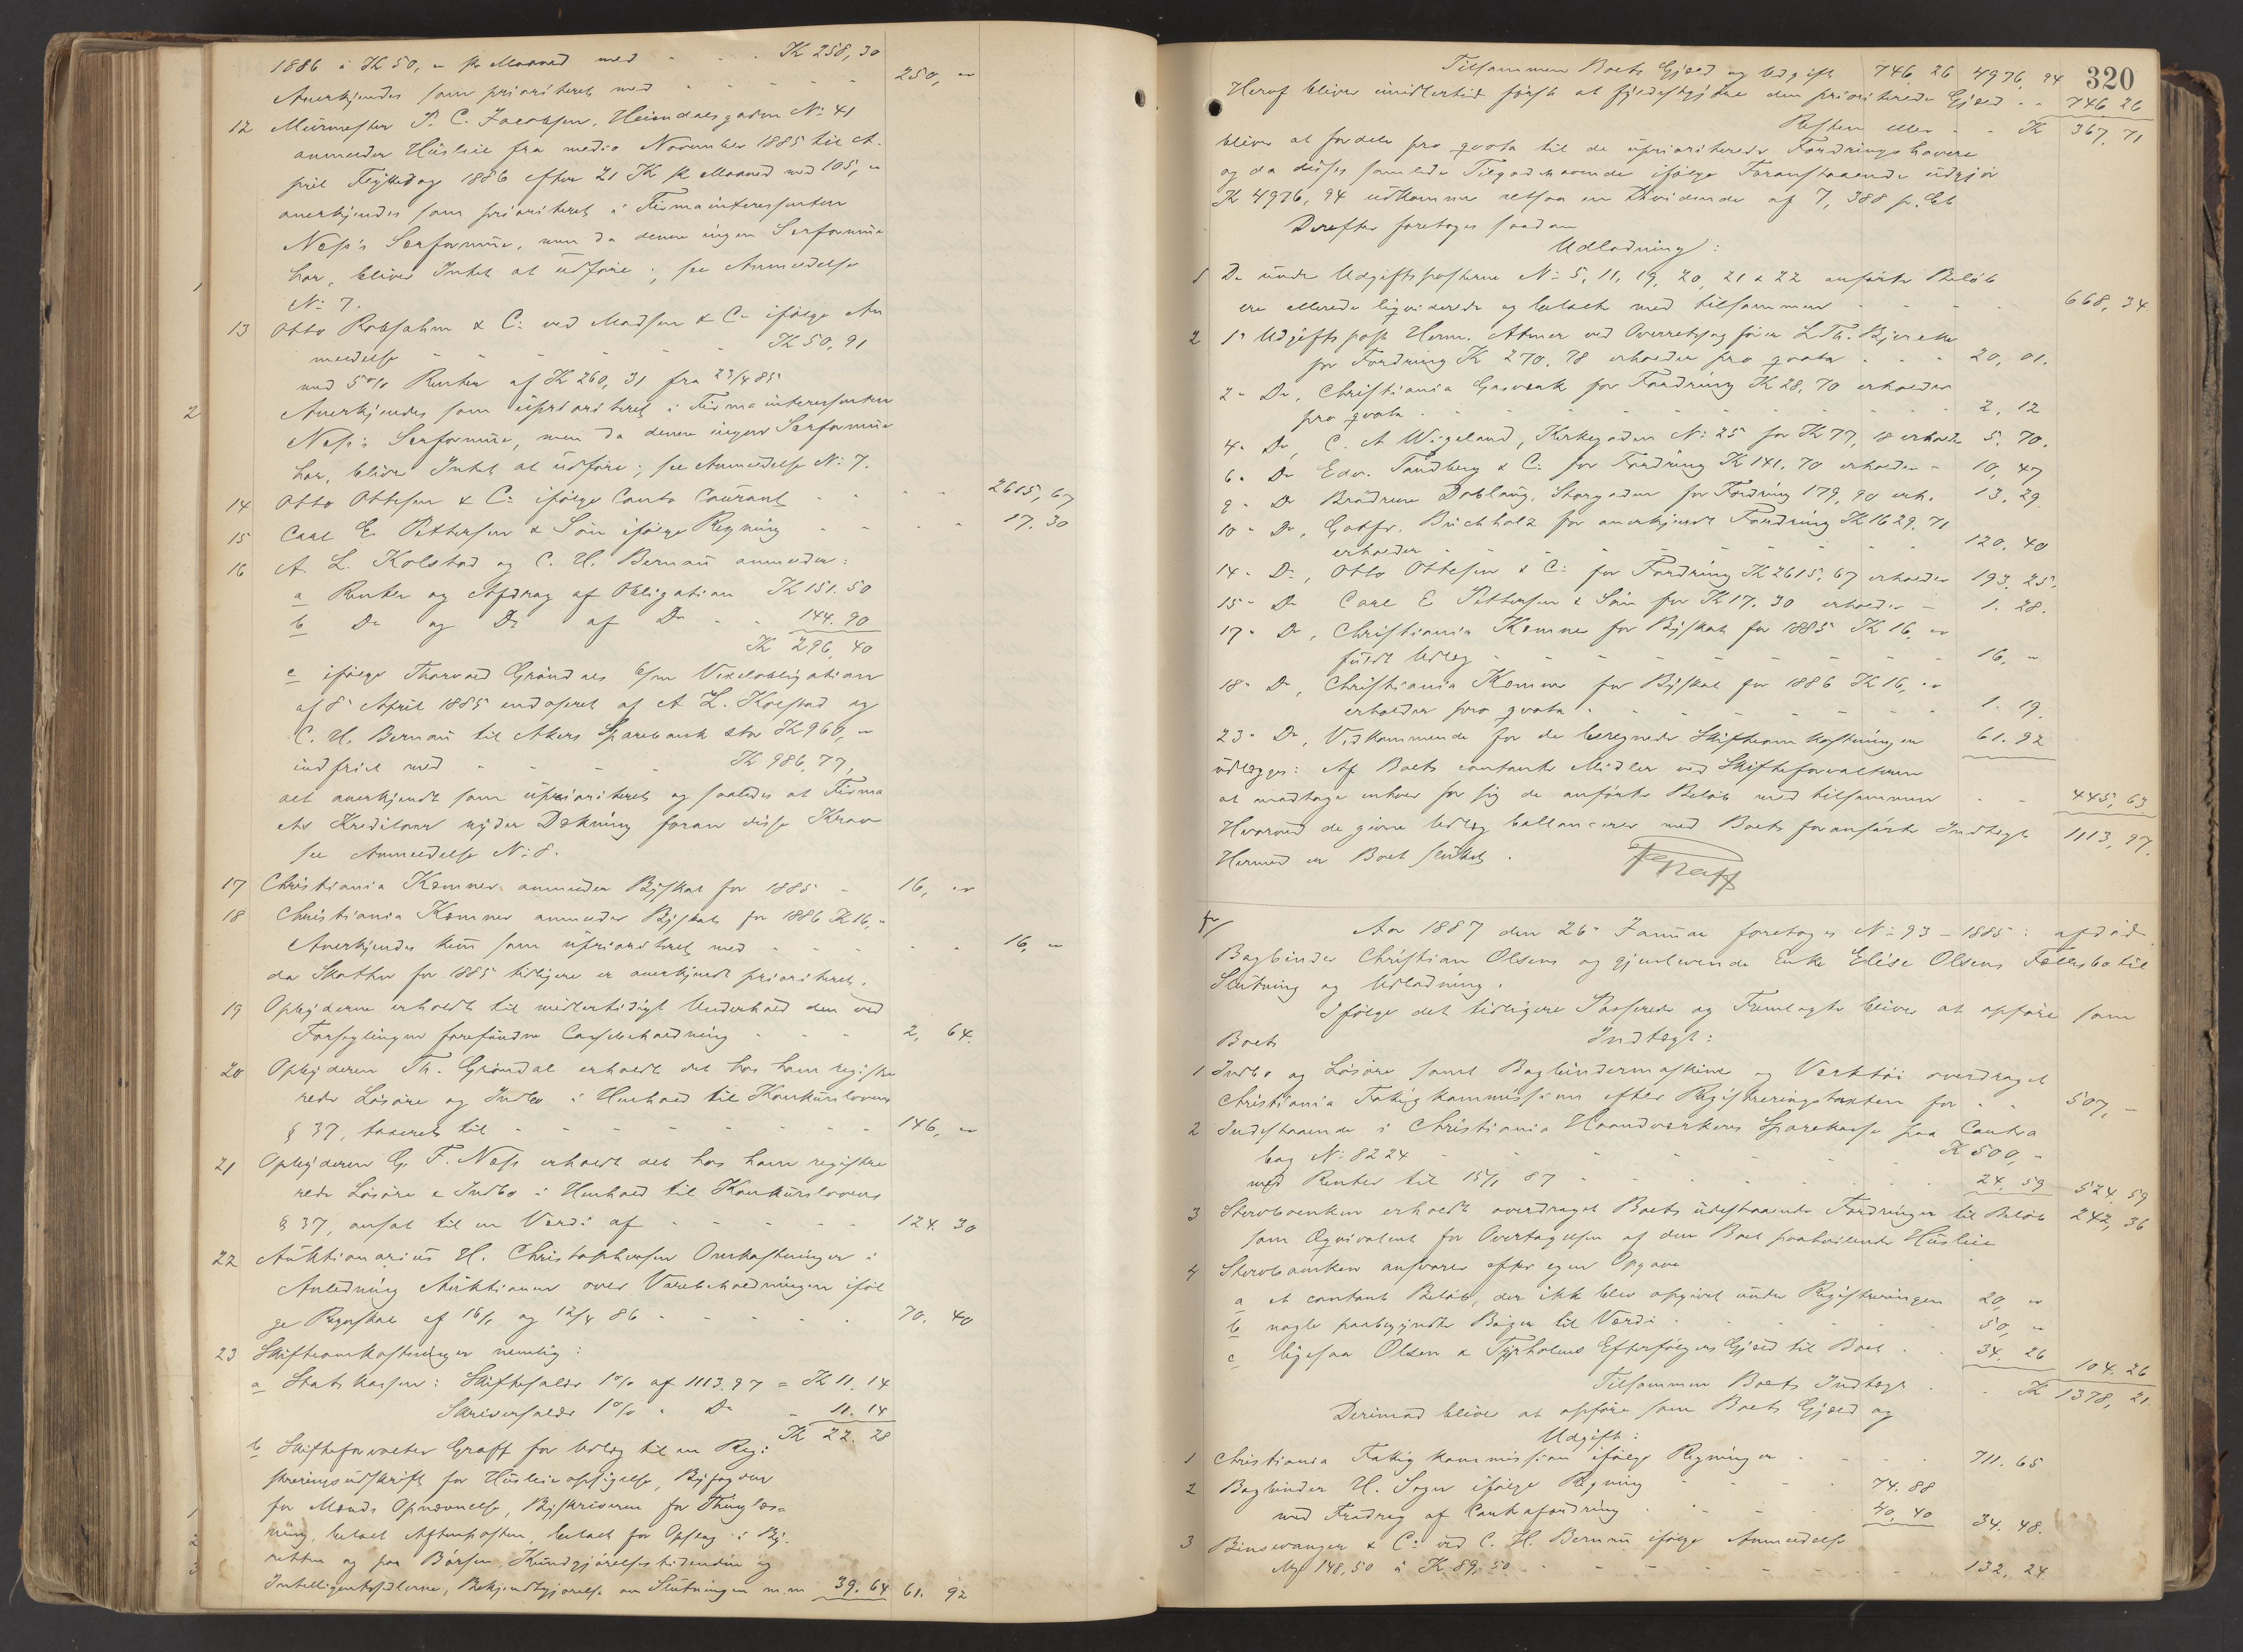 1886 à Kr 50, " pr Maaned med - - - Kr 258, 30
Anerkjendes som prioriteret med - - - 250, "
12 Murmester P. C. Jacobsen, Heimdalsgaden No 41
anmelder Husleie fra medio November 1885 til A-
pril Flyttedag 1886 efter 21 Kr pr Maaned med 105, "
anerkjendes som prioriteret i Firmainteressenten
Næss's Særformue, men da denne ingen Særformue
har, bliver Intet at udføre; see Anmeldelse
No 7.
13 Otto Robsahm & Co ved Madsen & Co ifølge An
meldelse - - - - Kr 50, 91
med 5% Renter af Kr 260, 31 fra 23/4 85
Anerkjendes som uprioriteret i Firmainteressenten
Næss's Særformue, men da denne ingen Særformue
har, bliver Intet at udføre; see Anmeldelse No 7.
14 Otto Ottesen & Co ifølge Conto Courant - - - 2615, 67
15 Carl E. Pettersen & Søn ifølge Regning - - - 17. 30
16 A. L. Kolstad og C. H. Bernau anmelder:
a Renter og Afdrag af Obligation Kr 151. 50
b Do og Do af Do - - 144. 90
Kr 296, 40
c ifølge Thorvald Grøndals 6/m Vexelobligation
af 8de April 1885 endosseret af A. L. Kolstad og
C. H. Bernau til Akers Sparebank stor Kr 960, "
indfriet med - - - - Kr 986, 77,
alt anerkjendt som uprioriteret og saaledes at Firma
ets Kreditorer nyder Dækning foran disse Krav
see Anmeldelse No 8.
17 Christiania Kæmner anmelder Byskat for 1885 - 16, "
18 Christiania Kæmner anmelder Byskat for 1886 Kr 16, "
Anerkjendes kun som uprioriteret med - - - - 16, "
da Skatten for 1885 tidligere er anerkjendt prioriteret.
19 Opbyderne erholdt til midlertidigt Underhold den ved
Forseglingen forefundne Cassebeholdning - - - 2, 64.
20 Opbyderen Th. Grøndal erholdt det hos ham registre
rede Løsøre og Indbo i Henhold til Konkurslovens
§ 37, taxeret til - - - - - - - 146, "
21 Opbyderen G. F. Næss erholdt det hos ham registre
rede Løsøre & Indbo i Henhold til Konkurslovens
§ 37, ansat til en Værdi af - - - - - 124. 30
22 Auktionarius H. Christophersen Omkostninger i
Anledning Auktionen over Varebeholdningen iføl
ge Regnskab af 16/1 og 12/4 86 - - - - - 70. 40
23 Skifteomkostninger nemlig:
a Statskassen: Skiftesalær 1% af 1113.97 = Kr 11. 14
Skriversalær 1% " Do - 11. 14
Kr 22. 28
b Skifteforvalter Graff for Udlæg til en Regi-
streringsudskrift for Husleieopsigelse, Byfogden
for Mænds Opnævnelse, Byskriveren for Thinglæs-
ning, betalt Aftenposten, betalt for Opslag i By-
retten og paa Børsen, Kundgjørelsestidenden og
Intelligentssedlerne, Bekjendtgjørelse om Slutningen m.m 39. 64 61. 92
320
Tilsammen Boets Gjæld og Udgift 746, 26 4976, 94
Heraf bliver imidlertid først at fyldestgjøre den prioriterede Gjæld - - 746. 26
Resten eller - - Kr 367, 71
bliver at fordele pro qvota til de uprioriterede Fordringshavere
og da disses samlede Tilgodehavende ifølge Foranstaaende udgjør
Kr 4976, 94 udkommer altsaa en Dividende af 7, 388 p. Ct
Derefter foretages saadan
Udlodning:
1 De under Udgiftsposterne No 5, 11, 19, 20, 21 & 22 anførte Beløb
ere allerede liqviderede og betalte med tilsammen - - - - 668, 34
2 1ste Udgiftspost Herm. Abmer ved Overretssagfører L. Th. Bjercke
for Fordring Kr 270. 78 erholder pro qvota - - - 20, 01.
2- Do, Christiania Gasværk for Fordring Kr 28, 70 erholder
pro qvota - - - - - - - 2. 12
4- Do, C. A. Wigeland, Kirkegaden No 25 for Kr 77, 18 erholder 5. 70.
6- Do Edv. Tandberg & Co for Fordring Kr 141. 70 erholder - 10, 47
8- Do Brødrene Dobloug, Storgaden for Fordring 179, 90 erh. 13. 29.
10- Do, Gotfr. Buchholz for anerkjendt Fordring Kr 1629. 71
erholder - - - - - - - 120, 40
14- Do, Otto Ottesen & Co for Fordring Kr 2615, 67 erholder 193. 25.
15- Do Carl E Pettersen & Søn for Kr 17. 30 erholder - 1. 28.
17- Do, Christiania Kæmner for Byskat for 1885 Kr 16, "
fuldt Udlæg - - - - - - 16, "
18- Do, Christiania Kæmner for Byskat for 1886 Kr 16, "
erholder pro qvota - - - - - - 1. 19.
23- Do, Vedkommende for de beregnede Skifteomkostninger 61. 92
udlægges: Af Boets contante Midler ved Skifteforvalteren
at modtage enhver for sig de anførte Beløb med tilsammen - - 445, 63.
Hvorved de givne Udlæg ballancerer med Boets foranførte Indtægt 1113, 97.
Hermed er Boet sluttet.
Graff
Aar 1887 den 26de Januar foretoges No 93 - 1885: afdøde
Bogbinder Christian Olsens og gjenlevende Enke Elise Olsens Fællesbo til
Slutning og Udlodning.
Ifølge det tidligere Passerede og Fremlagte bliver at opføre som
Boets Indtægt:
1 Indbo og Løsøre samt Bogbindermaskine og Værktøi overdraget
Christiania Fattigkommission efter Registreringstaxten for - - 507, -
2 Indestaaende i Christiania Haandværkeres Sparekasse paa Contra
bog No 8224 - - - - - - Kr 500, -
med Renter til 15/1 87 - - - - - 24. 59 524, 59
3 Stervboenken erholdt overdraget Boets udestaaende Fordringer til Beløb 242, 36
som Æqvivalent for Overtagelsen af den Boet paahvilende Husleie
4 Stervboenken ansvarer efter egen Opgave
a et contant Beløb, der ikk blev opgivet under Registreringen 20, "
b nogle paabegyndte Bøger til Værdi - - - - 50, "
c ligesaa Olsen & Typholms Efterfølgers Gjæld til Boet - - 34. 26 104. 26
Tilsammen Boets Indtægt - - Kr 1378, 21.
Derimod bliver at opføre som Boets Gjæld og
Udgift:
1 Christiania Fattigkommission ifølge Regninger - - - - 711. 65
2 Bogbinder H. Soger ifølge Regning - - - 74. 88
med Fradrag af Contrafordring - - - 40, 40 34. 48.
3 Binswanger & Co ved C. H. Bernau ifølge Anmeldelse
Mk 148,50 à K 89, 50 - - - - - - 132, 24.